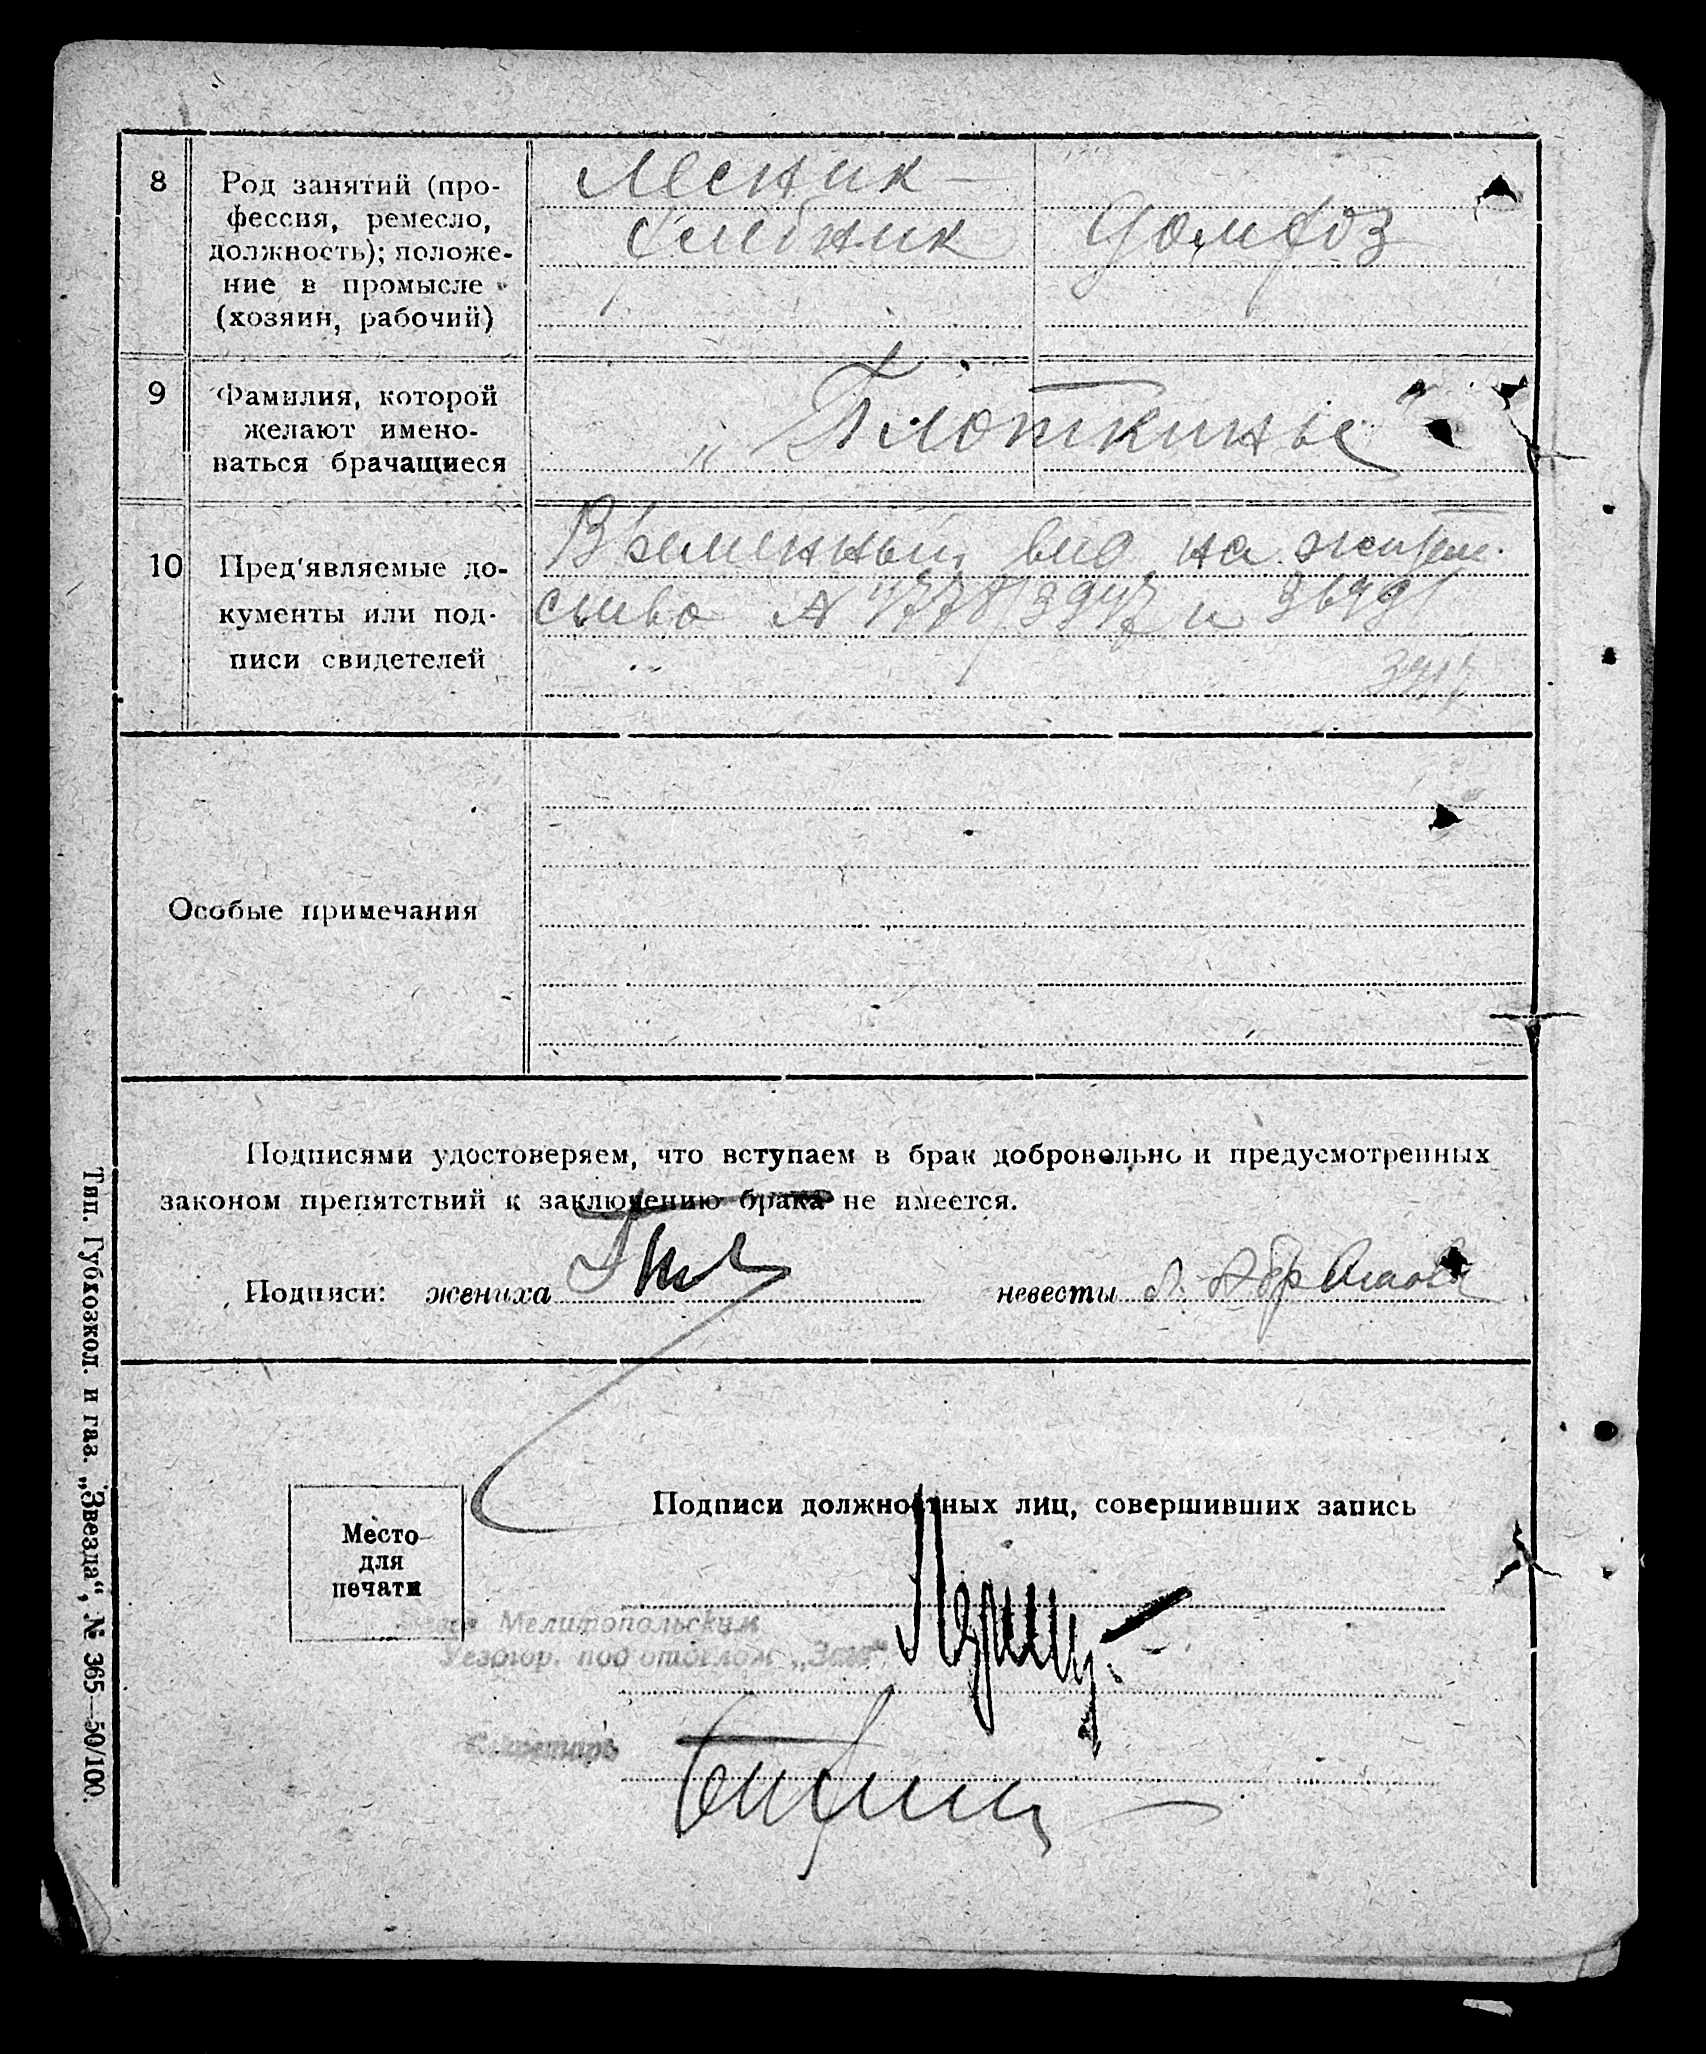 8
Род занятий (про-
фессия, ремесло,
должность); положе-
ние в промысле
(хозяин, рабочий)
Лесник -
хлебник
домхоз
9
Фамилия, которой
желают имено-
ваться брачащиеся
„Плоткины"
10
Пред'являемые до-
кументы или под-
писи свидетелей
Временный вид на житель-
ство №
Особые примечания
Подписями удостоверяем, что вступаем в брак добровольно и предусмотренных
законом препятствий к заключению брака не имеется.
Подписи: жениха
невесты
Место
для
печати
Подписи должностных лиц, совершивших запись
Мелитопольским
Уездгор. под отделом „Загс"
Секретарь
Тип. Губкозкол. и газ. „Звезда“, № 365—50/100.